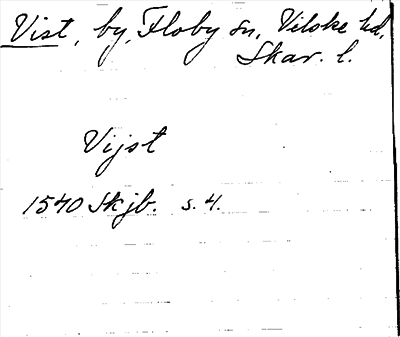 Vist, by, Floby sn, Vilske hd,
Skar. l.
Vijst
1540 Skjb. s. 4.